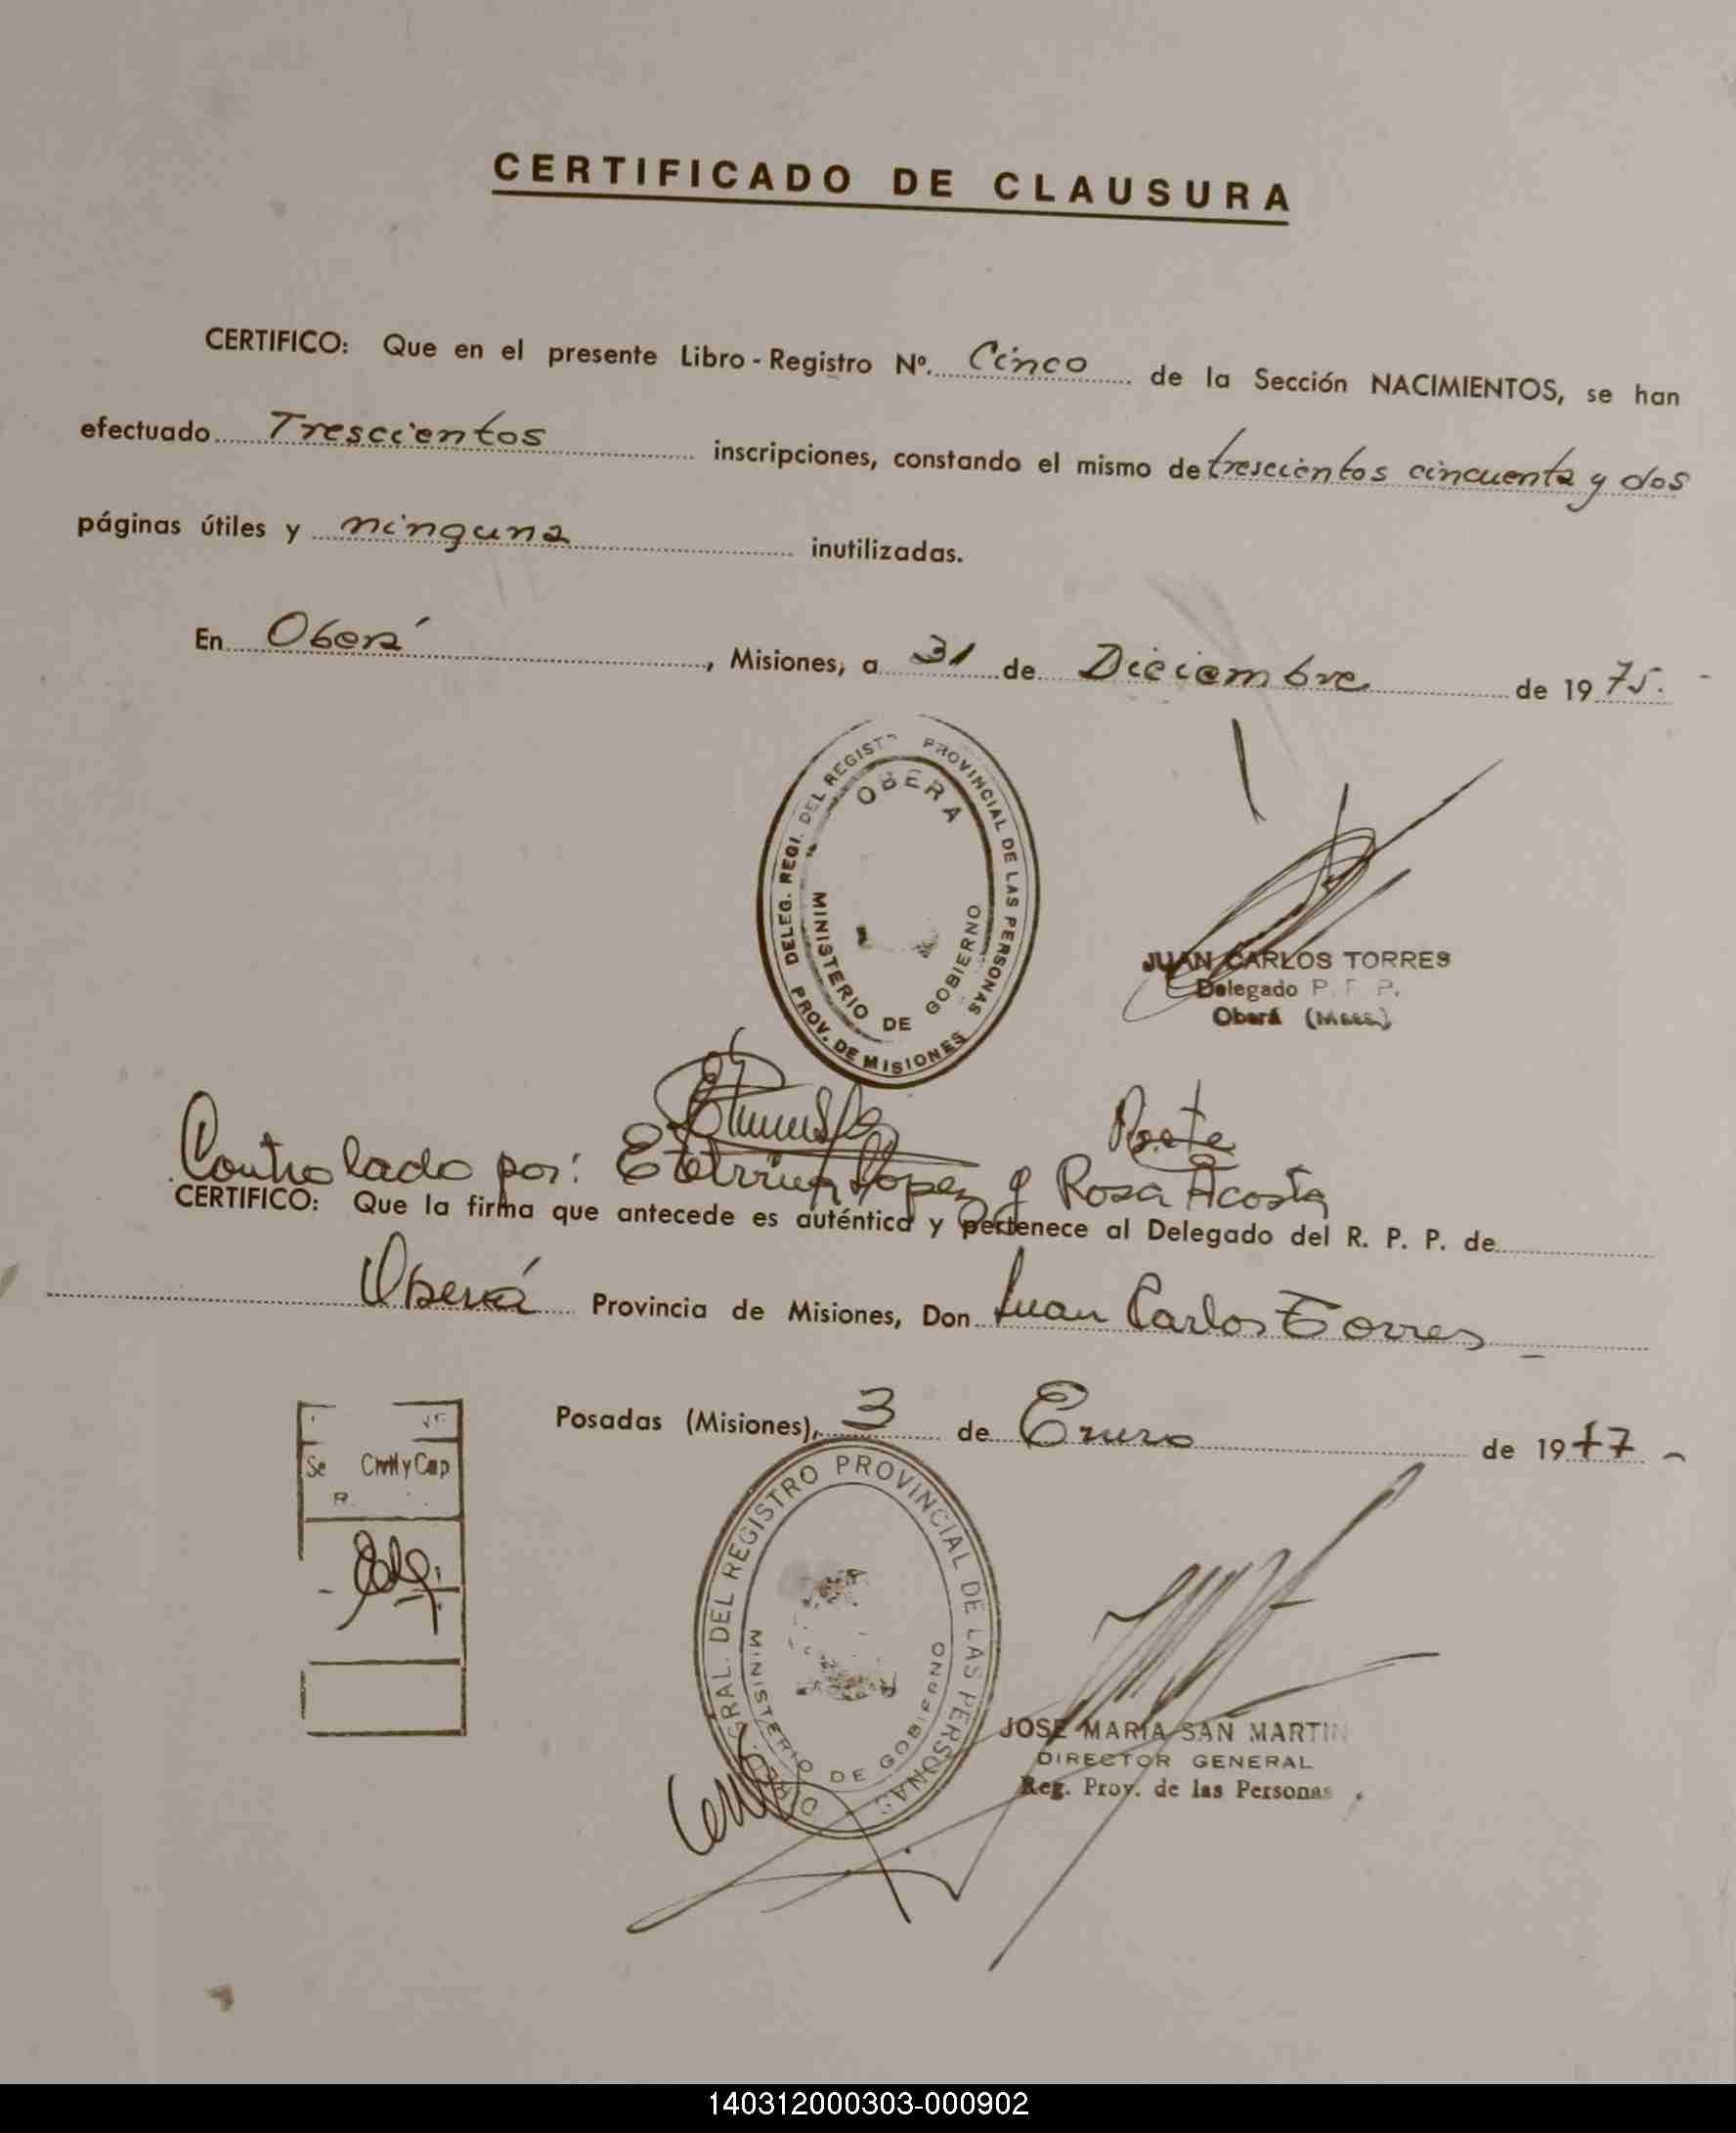 CERTIFICADO DE CLAUSURA
CERTIFICO: Que en el presente Libro - Registro Nº. Cinco de la Sección NACIMIENTOS, se han
efectuado Trescientos inscripciones, constando el mismo de trescientos cincuenta y dos
páginas útiles y ninguna inutilizadas.
En Oberá, Misiones, a 31 de Diciembre de 1975.
DELEG. REGI. DEL REGIST PROVINCIAL DE LAS PERSONAS
OBERA
MINISTERIO DE GOBIERNO
PROV. DE MISIONES
JUAN CARLOS TORRES
Delegado P. P.
Oberá
Controlado por: Lopez y Rosa Acosta
CERTIFICO: Que la firma que antecede es auténtica y pertenece al Delegado del R. P. P. de
Oberá Provincia de Misiones, Don Juan Carlos Torres
Posadas (Misiones), 3 de Enero de 1977
Se Civil y Cap
R.
GRAL. DEL REGISTRO PROVINCIAL DE LAS PERSONAS
MINISTERIO DE GOBIERNO
JOSE MARIA SAN MARTIN
DIRECTOR GENERAL
Reg. Prov. de las Personas
140312000303-000902